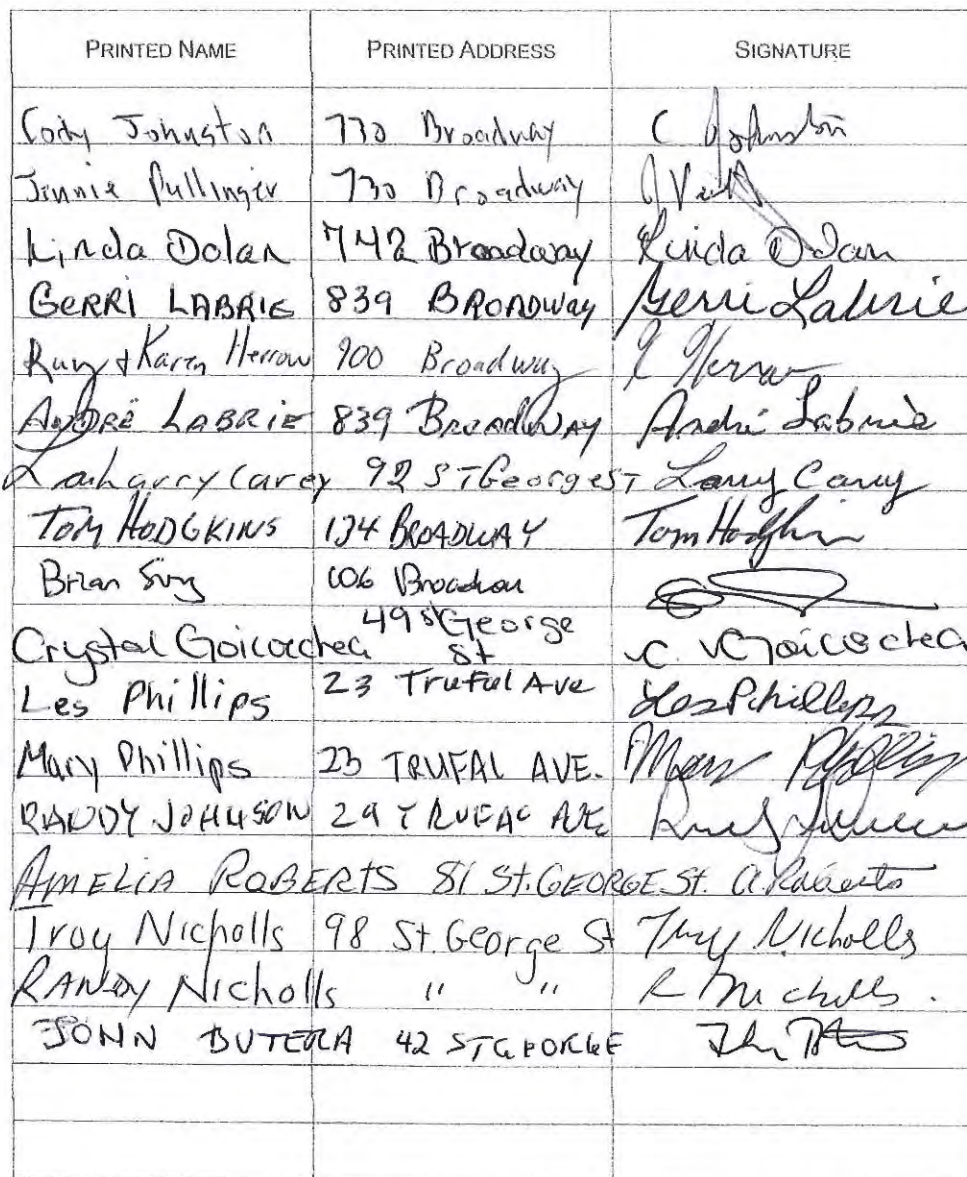 PRINTED NAME PRINTED ADDRESS SIGNATURE
Cody Johnston 730 Broadway C Johnston
Jinnie Pullinger 730 Broadway
Linda Dolan 742 Broadway Linda Dolan
GERRI LABRIE 839 BROADWAY Gerri Labrie
Ray + Karen Herrow 900 Broadway K Herrow
ANDRÉ LABRIE 839 BROADWAY André Labrie
Larry Carey 92 ST George ST Larry Carey
TOM HODGKINS 134 BROADWAY Tom Hodgkin
Brian 606
Crystal Goicochea 49 St George St C. Goicochea
Les Phillips 23 Truful Ave Les Phillips
Mary Phillips 23 TRUFAL AVE. Mary Phillips
RANDY JOHNSON 29 TRUFAL AVE
AMELIA ROBERTS 81 St. GEORGE St. A. Roberts
Troy Nicholls 98 St. George St Troy Nicholls
RANDY Nicholls " " R Nicholls.
JOHN BUTERA 42 ST GEORGE